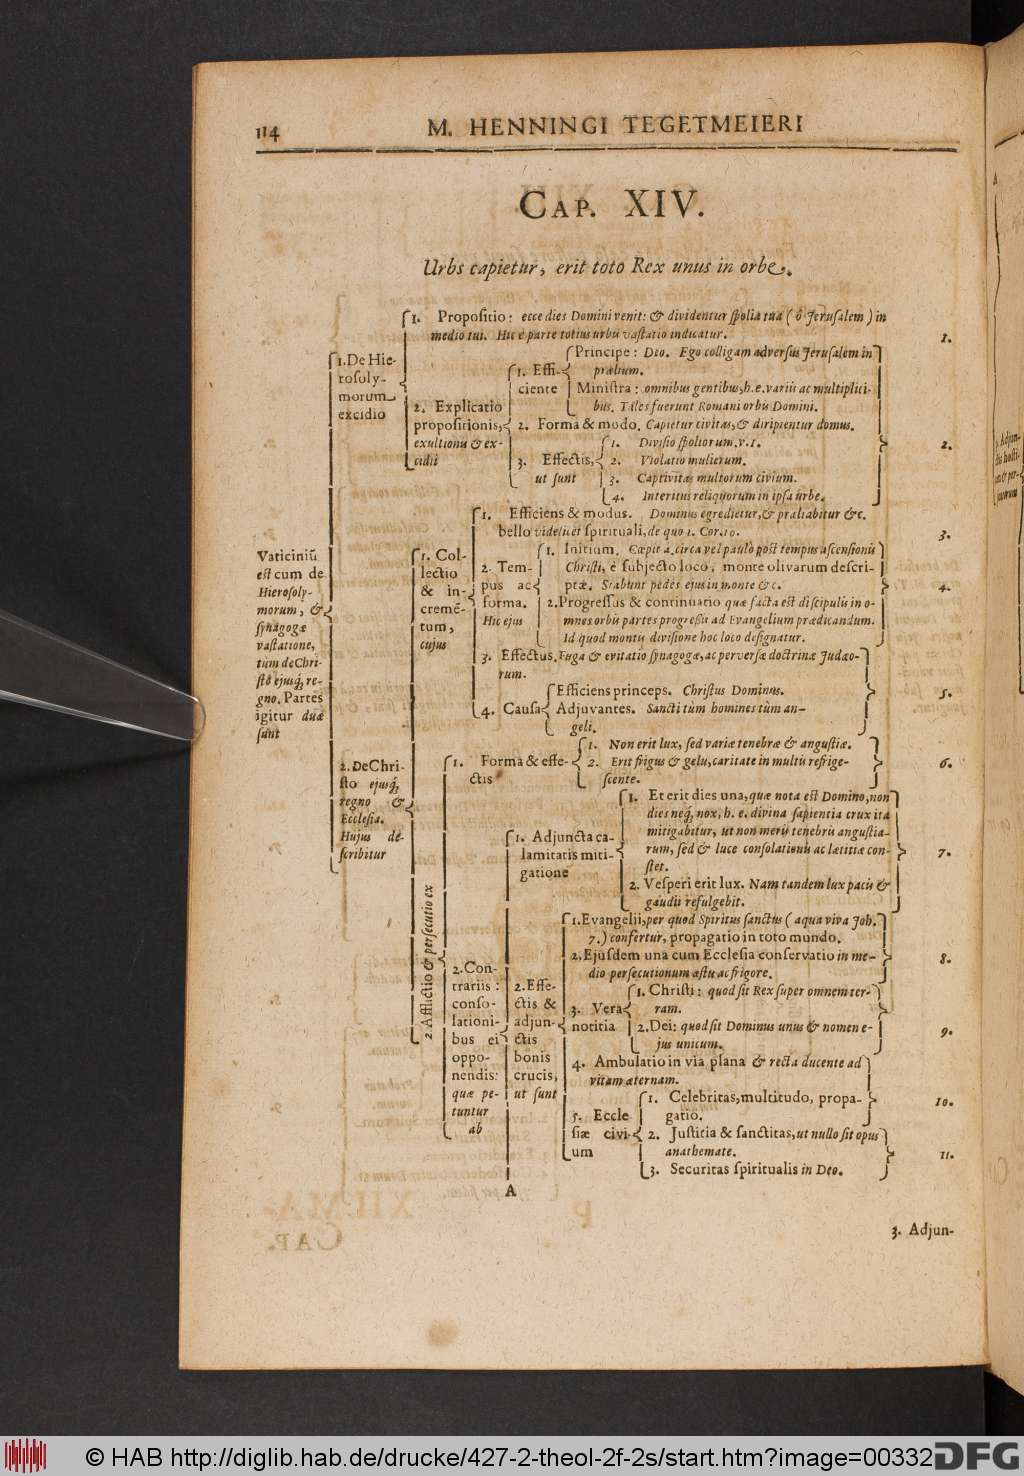 114
M. HENNINGI TEGETMEIERI
CAP. XIV.
Urbs capietur, erit toto Rex unus in orbe.
Vaticiniũ
est cum de
Hierosoly-
morum, &
synagogæ
vastatione,
tùm de Chri-
stô ejusq́; re-
gno. Partes
igitur duæ
sunt
1. De Hie-
rosoly-
morum
excidio
1. Propositio: ecce dies Domini venit: & dividentur spolia tua (ô Jerusalem) in
medio tui. Hîc è parte totius urbis vastatio indicatur.
1.
2. Explicatio
propositionis,
exultionis & ex-
cidii
1. Effi-
ciente
Principe: Deo. Ego colligam adversùs Jerusalem in
prælium.
Ministra: omnibus gentibus, h. e. variis ac multiplici-
bus. Tales fuerunt Romani orbis Domini.
2. Forma & modo. Capietur civitas, & diripientur domus.
3. Effectis,
ut sunt
1. Divisio spoliorum. v. 1.
2. Violatio mulierum.
3. Captivitas multorum civium.
4. Interitus reliquorum in ipsa urbe.
2.
1. Col-
lectio
& in-
cremẽ-
tum,
cujus
1. Efficiens & modus. Dominus egredietur, & præliabitur &c.
bello videlicet spirituali, de quo 1. Cor. 10.
3.
2. Tem-
pus ac
forma.
Hîc ejus
1. Initium. Cœpit à circa vel paulò post tempus ascensionis
Christi, è subjecto loco, monte olivarum descri-
ptæ. Stabunt pedes ejus in monte &c.
2. Progressus & continuatio quæ facta est discipulis in o-
mnes orbis partes progressis ad Evangelium prædicandum.
Id quod montis divisione hoc loco designatur.
4.
3. Effectus. Fuga & evitatio synagogæ, ac perversæ doctrinæ Judæo-
rum.
4. Causa
Efficiens princeps. Christus Dominus.
Adjuvantes. Sancti tùm homines tùm an-
geli.
5.
2. De Chri-
sto ejusq́;
regno &
Ecclesia.
Hujus de-
scribitur
2. Afflictio & persecutio ex
1. Forma & effe-
ctis
1. Non erit lux, sed variæ tenebræ & angustiæ.
2. Erit frigus & gelu, caritate in multis refrige-
scente.
6.
2. Con-
trariis:
conso-
lationi-
bus ei
oppo-
nendis:
quæ pe-
tuntur
ab
1. Adjuncta ca-
lamitatis miti-
gatione
1. Et erit dies una, quæ nota est Domino, non
dies neq́; nox, h. e. divina sapientia crux ita
mitigabitur, ut non meris tenebris angustia-
rum, sed & luce consolationis ac lætitiæ con-
stet.
2. Vesperi erit lux. Nam tandem lux pacis &
gaudii refulgebit.
7.
2. Effe-
ctis &
adjun-
ctis
bonis
crucis,
ut sunt
A
1. Evangelii, per quod Spiritus sanctus (aqua viva Joh.
7.) confertur, propagatio in toto mundo.
2. Ejusdem una cum Ecclesia conservatio in me-
dio persecutionum æstu ac frigore.
8.
3. Vera
notitia
1. Christi: quod sit Rex super omnem ter-
ram.
2. Dei: quod sit Dominus unus & nomen e-
jus unicum.
9.
4. Ambulatio in via plana & recta ducente ad
vitam æternam.
5. Eccle
siæ civi-
um
1. Celebritas, multitudo, propa-
gatio.
10.
2. Justitia & sanctitas, ut nullo sit opus
anathemate.
3. Securitas spiritualis in Deo.
11.
3. Adjun-
© HAB http://diglib.hab.de/drucke/427-2-theol-2f-2s/start.htm?image=00332
DFG